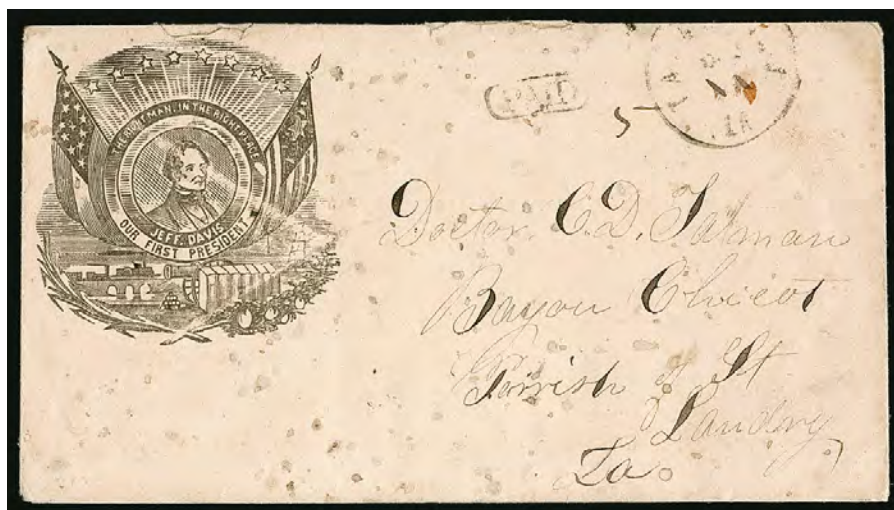 THE RIGHT MAN IN THE RIGHT PLACE
JEFF. DAVIS
OUR FIRST PRESIDENT
PAID
5
LA
Doctor C. D. Tatman
Bayou Chicot
Parrish of St
Landry
La.